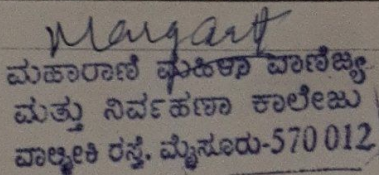 ಮಹಾರಾಣಿ ಮಹಿಳಾ ವಾಣಿಜ್ಯ
ಮತ್ತು ನಿರ್ವಹಣಾ ಕಾಲೇಜು
ವಾಲ್ಮೀಕಿ ರಸ್ತೆ, ಮೈಸೂರು-570 012